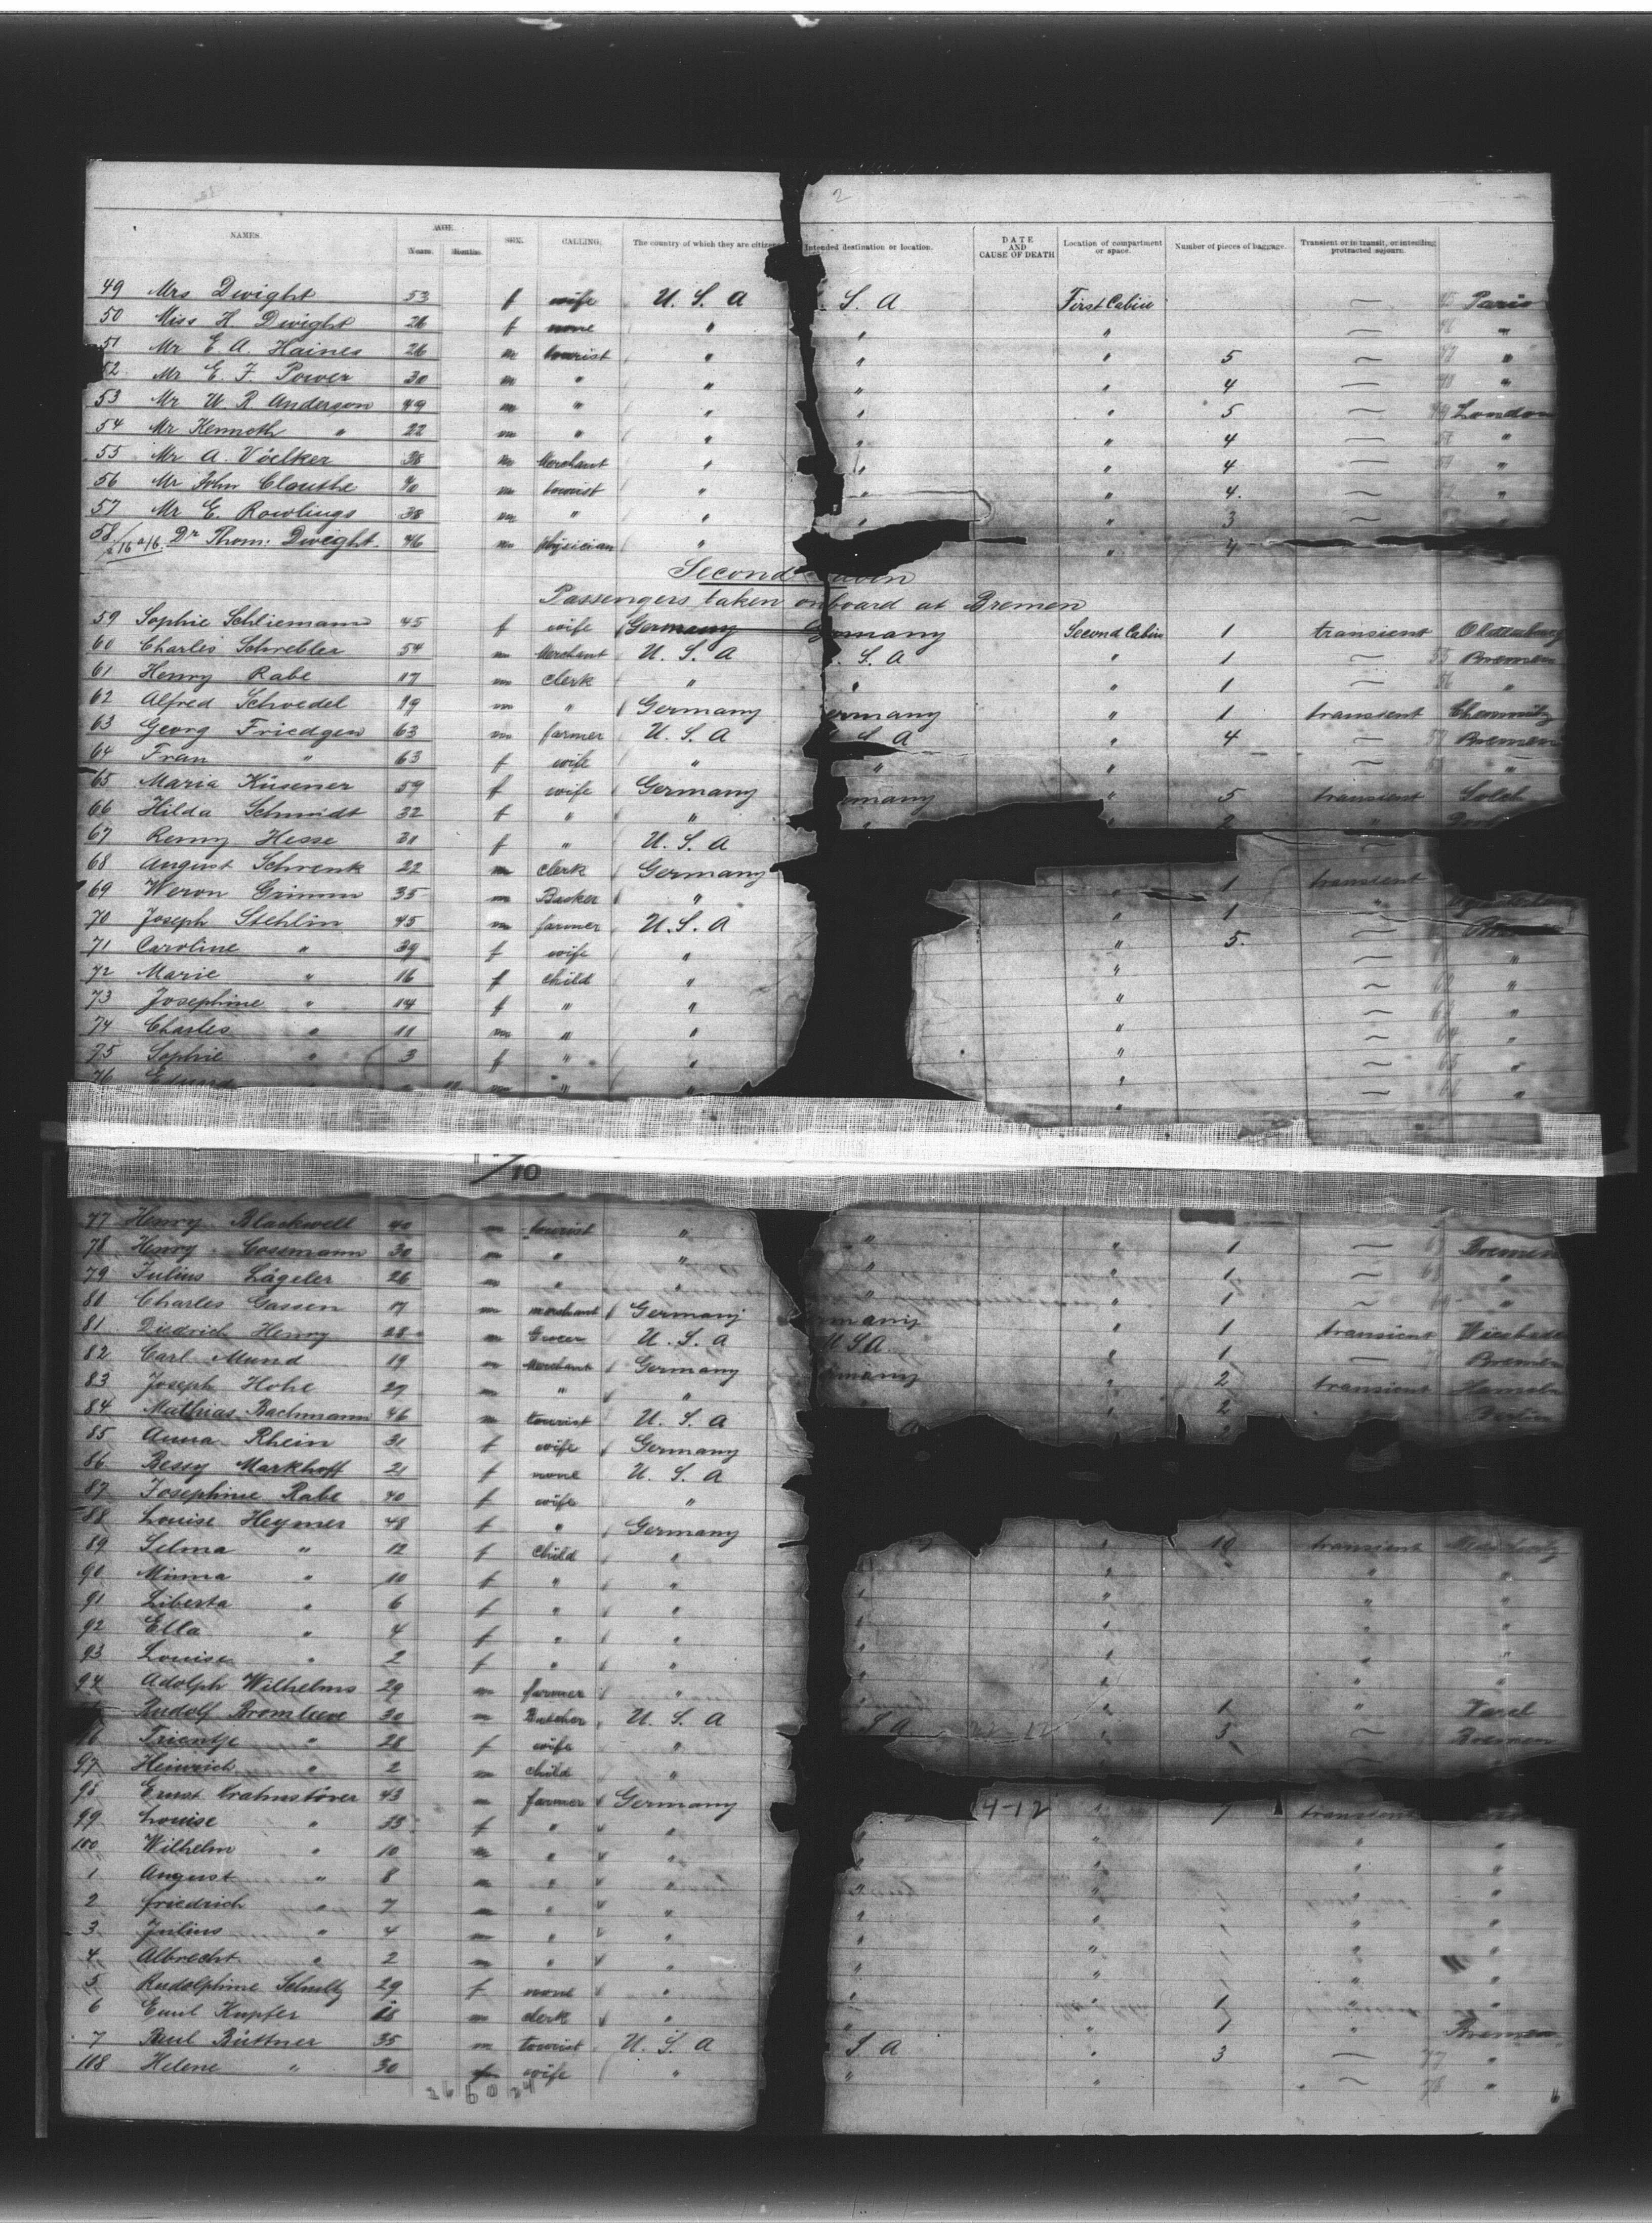 2
NAMES. AGE. Years. Months. SEX. CALLING. The country of which they are citizens Intended destination or location. DATE AND CAUSE OF DEATH Location of compartment or space. Number of pieces of baggage. Transient or in transit, or intending protracted sojourn.
49 Mrs Dwight 53 f wife U. S. A . S. A First Cabin — Paris
50 Miss H Dwight 26 f none " " " — "
51 Mr E. A. Haines 26 m tourist " " " 5 — "
52 Mr E. F. Power 30 m " " " " 4 — "
53 Mr W. R. Anderson 49 m " " " " 5 — London
54 Mr Kenneth " 22 m " " " " 4 — "
55 Mr A. Völker 38 m Merchant " " " 4 — "
56 Mr John Clauthe 40 m tourist " " " 4. — "
57 Mr E. Rowlings 38 m " " " " 3 —
58 Dr Thom: Dwight. 46 m physician " " 4
Second Cabin
Passengers taken onboard at Bremen
59 Sophie Schliemann 45 f wife Germany Germany Second Cabin 1 transient Oldenburg
60 Charles Schrebler 54 m Merchant U. S. A . S. A " 1 — 55 Bremen
61 Henry Rabe 17 m clerk " " " 1 — 56 "
62 Alfred Schoedel 19 m " Germany ermany " 1 transient Chemnitz
63 Georg Friedgen 63 m farmer U. S. A S. A " 4 — Bremen
64 Fran " 63 f wife " " " — "
65 Maria Küsener 59 f wife Germany many " 5 transient
66 Hilda Schmidt 32 f " " " 2 "
67 Remy Hesse 31 f " U. S. A —
68 August Schrenk 22 m clerk Germany 1 transient
69 Weron Grimm 35 m Basker " " 1 "
70 Joseph Stehlin 45 m farmer U. S. A " 5. —
71 Caroline " 39 f wife " " — "
72 Marie " 16 f child " " — 62 "
73 Josephine " 14 f " " " — 63 "
74 Charles " 11 m " " " — 64 "
75 Sophie " 3 f " " " — 65 "
76 m " " " — 66 "
/10
77 Henry Blackwell 40 m tourist " " " 1 — Bremen
78 Henry Cosemann 30 m " " " " 1 — 68 "
79 Julius Lägeler 26 m " " " " 1 — "
80 Charles Gassen 17 m merchant Germany rmany " 1 transient
81 Diedrich Henry 28 m Grocer U. S. A U S A " 1 — Bremen
82 Carl Mund 19 m Merchant Germany many " 2 transient Hameln
83 Joseph Hohe 29 m " " " 2 Berlin
84 Mathias Bachmann 46 m tourist U. S. A A
85 Anna Rhein 31 f wife Germany
86 Bessy Markhoff 21 f none U. S. A
87 Josephine Rabe 40 f wife "
88 Louise Heymer 48 f " Germany " 10 transient
89 Selma " 12 f child " " " "
90 Minna " 10 f " " " " "
91 Liberta " 6 f " " " " "
92 Ella " 4 f " " " " "
93 Louise " 2 f " " " " "
94 Adolph Wilhelms 29 m farmer " " " 1 " Varel
Rudolf Bromleeve 30 m Butcher U. S. A S A " 3 — Bremen
Trientje " 28 f wife " —
97 Heinrich " 2 m child "
98 Ernst Krahnstöver 43 m farmer Germany 4-12 " 7 transient
99 Louise " 33 f " " " " " "
100 Wilhelm " 10 m " " " " " "
1 August " 8 m " " " " " "
2 Friedrich " 7 m " " " " " "
3 Julius " 4 m " " " " " "
4 Albrecht " 2 m " " " " " "
5 Rudolphine Schultz 29 f none " " " 1 " "
6 Emil Kupfer m clerk " " " 1 " Bremen
7 Paul Büttner 35 m tourist U. S. A S A " 3 — 77 "
108 Helene " 30 f wife " " " — 78 "